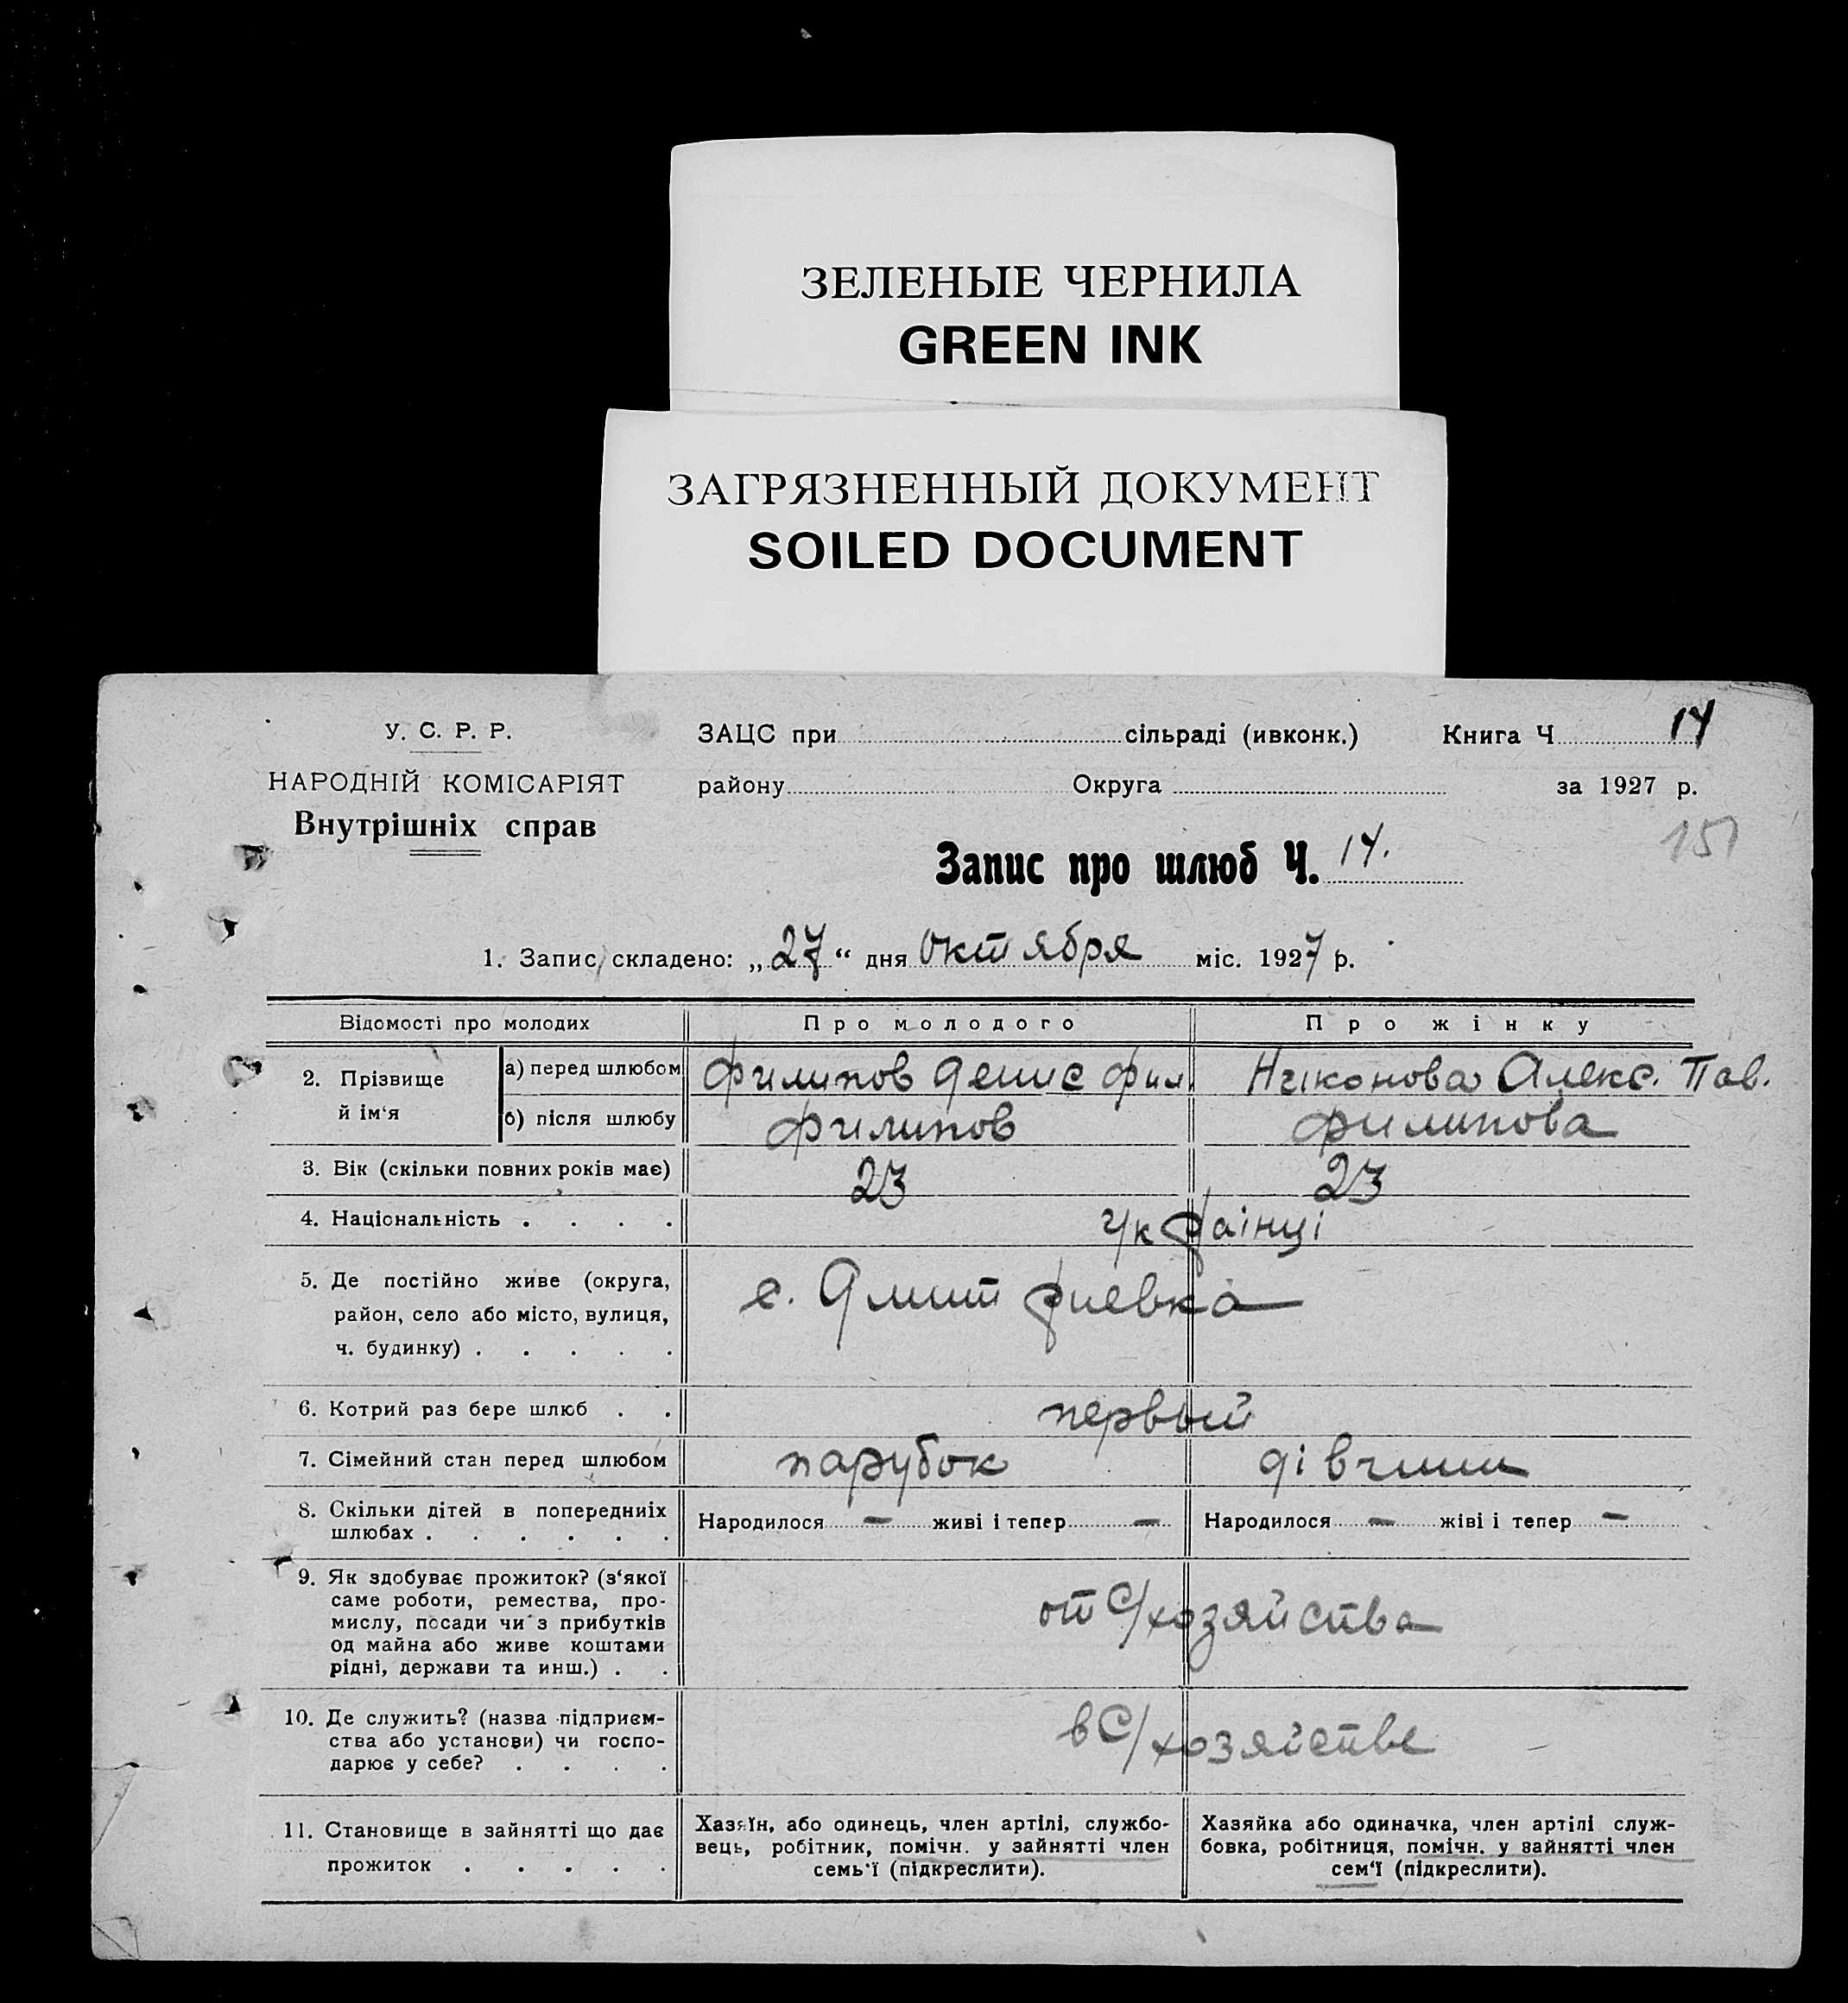 ЗЕЛЕНЫЕ ЧЕРНИЛА
GREEN INK
ЗАГРЯЗНЕННЫЙ ДОКУМЕНТ
SOILED DOCUMENT
У. С. Р. Р.
НАРОДНІЙ КОМІСАРІЯТ
Внутрішніх справ
ЗАЦС при сільраді (ивконк.) Книга Ч 14
району Округа за 1927 р.
151
Запис про шлюб Ч. 14.
1. Запис складено: „27“ дня октября міс. 1927 р.
Відомості про молодих Про молодого Про жінку
2. Прізвище й ім‘я
а) перед шлюбом Филипов Денис Фил. Никонова Алекс. Пав.
б) після шлюбу Филипов Филипова
3. Вік (скільки повних років має) 23 23
4. Національність . . . . Украінці
5. Де постійно живе (округа,
район, село або місто, вулиця,
ч. будинку) . . . . .
с. Дмитриевка
6. Котрий раз бере шлюб . . первый
7. Сімейний стан перед шлюбом парубок дівчини
8. Скільки дітей в попередниіх
шлюбах . . . . . .
Народилося — живі і тепер — Народилося — жіві і тепер —
9. Як здобуває прожиток? (з‘якої
саме роботи, ремества, про-
мислу, посади чи з прибутків
од майна або живе коштами
рідні, держави та инш.) . .
от С/хозяйства
10. Де служить? (назва підприєм-
ства або установи) чи госпо-
дарює у себе? . . . .
в С/хозяйстве
11. Становище в зайнятті що дає
прожиток . . . . .
Хазяїн, або одинець, член артілі, службо-
вець, робітник, помічн. у зайнятті член
семь‘ї (підкреслити).
Хазяйка або одиначка, член артілі служ-
бовка, робітниця, помічн. у зайнятті член
сем‘ї (підкреслити).